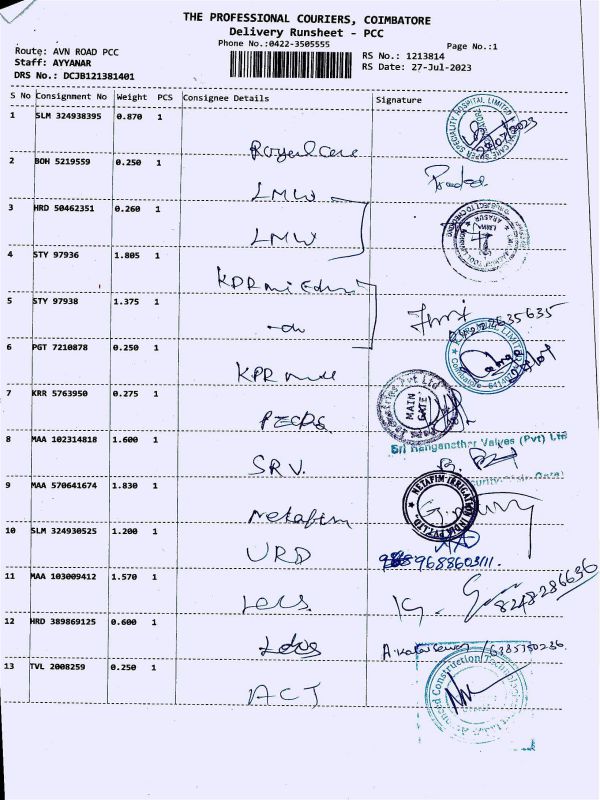 THE PROFESSIONAL COURIERS, COIMBATORE
Delivery Runsheet - PCC
Phone No.:0422-3505555
Page No.:1
Route: AVN ROAD PCC
RS No.: 1213814
Staff: AYYANAR
RS Date: 27-Jul-2023
DRS No.: DCJB121381401
S No Consignment No Weight PCS Consignee Details Signature
1 SLM 324938395 0.870 1
Royal Care
2 BOH 5219559 0.250 1
LMW
3 HRD 50462351 0.260 1
LMW
4 STY 97936 1.805 1
KPR mi Edun
5 STY 97938 1.375 1
-do
6 PGT 7210878 0.250 1
KPR mill
7 KRR 5763950 0.275 1
MAIN
GATE
8 MAA 102314818 1.600 1
Sri Ranganather Valves (Pvt) Ltd
SRV.
9 MAA 570641674 1.830 1
NETAFIM IRRIGATION INDIA PVT.LTD.
Netafim
10 SLM 324930525 1.200 1
URD
9688603111.
11 MAA 103009412 1.570 1
8248286636
12 HRD 389869125 0.600 1
6385750236.
13 TVL 2008259 0.250 1
ACT